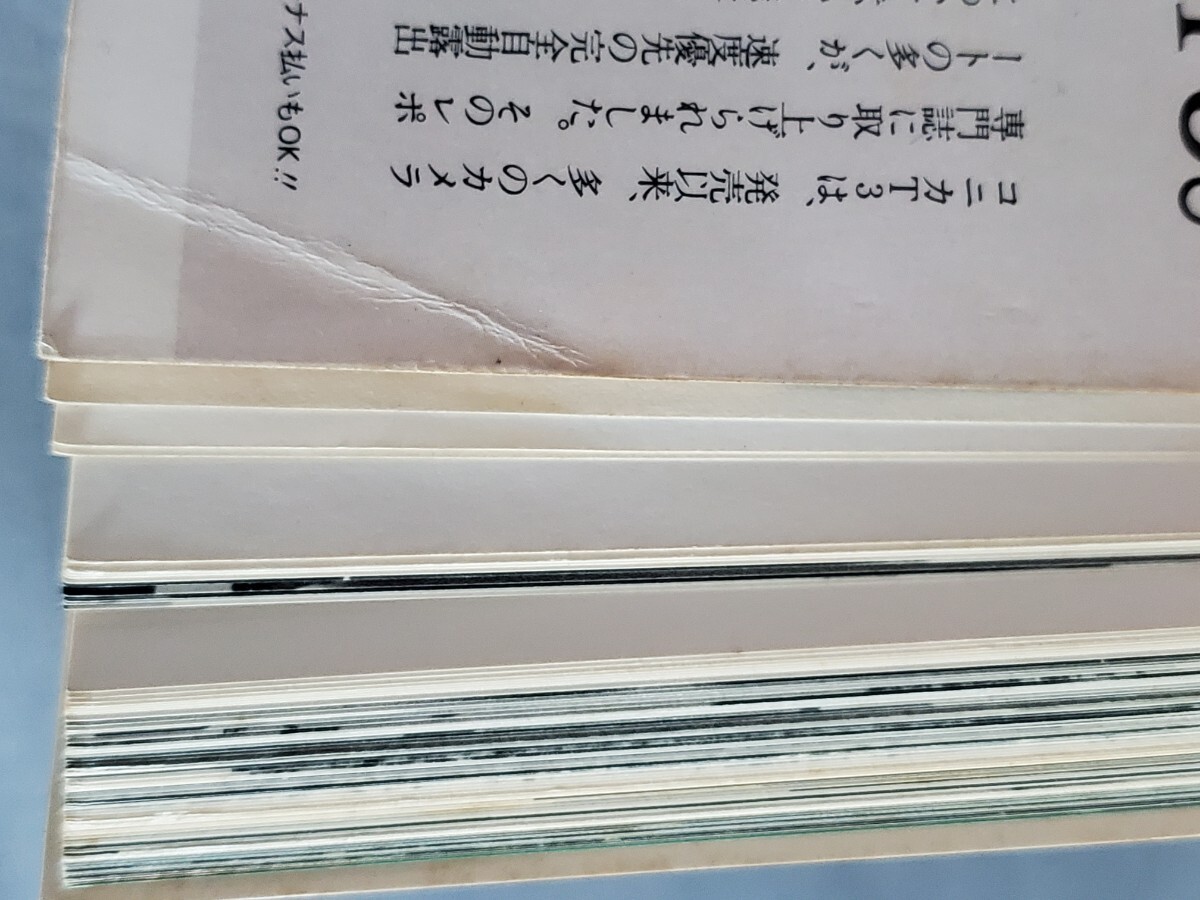 コニカT3は、発売以来、多くのカメラ
専門誌に取り上げられました。そのレポ
ートの多くが、速度優先の完全自動露出
ナス払いもOK!!